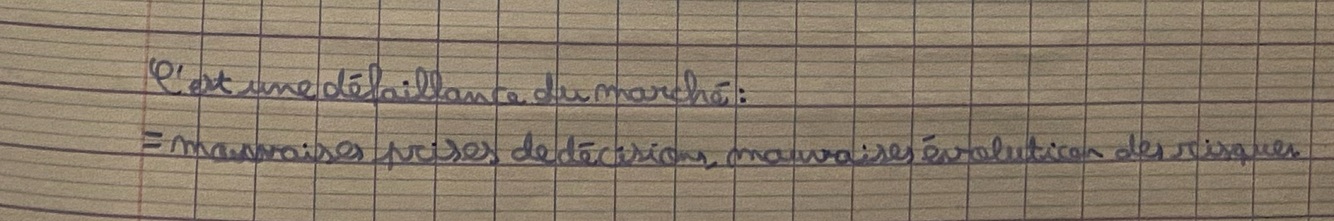 C'est une défaillance du marché :
= mauvaises prises de décisions, mauvaises évolution des risques